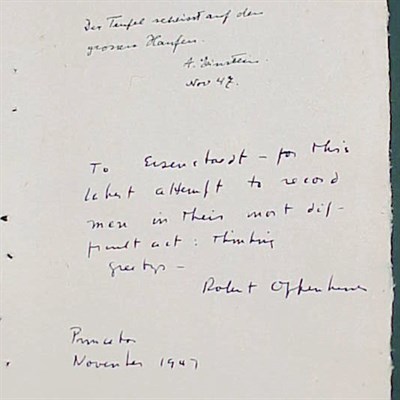 Der Teufel scheisst auf den
grossen Haufen.
A. Einstein.
Nov 47.
To Eisenstaedt – for this
latest attempt to record
men in their most dif-
ficult act : thinking
greetings –
Robert Oppenheimer
Princeton
November 1947